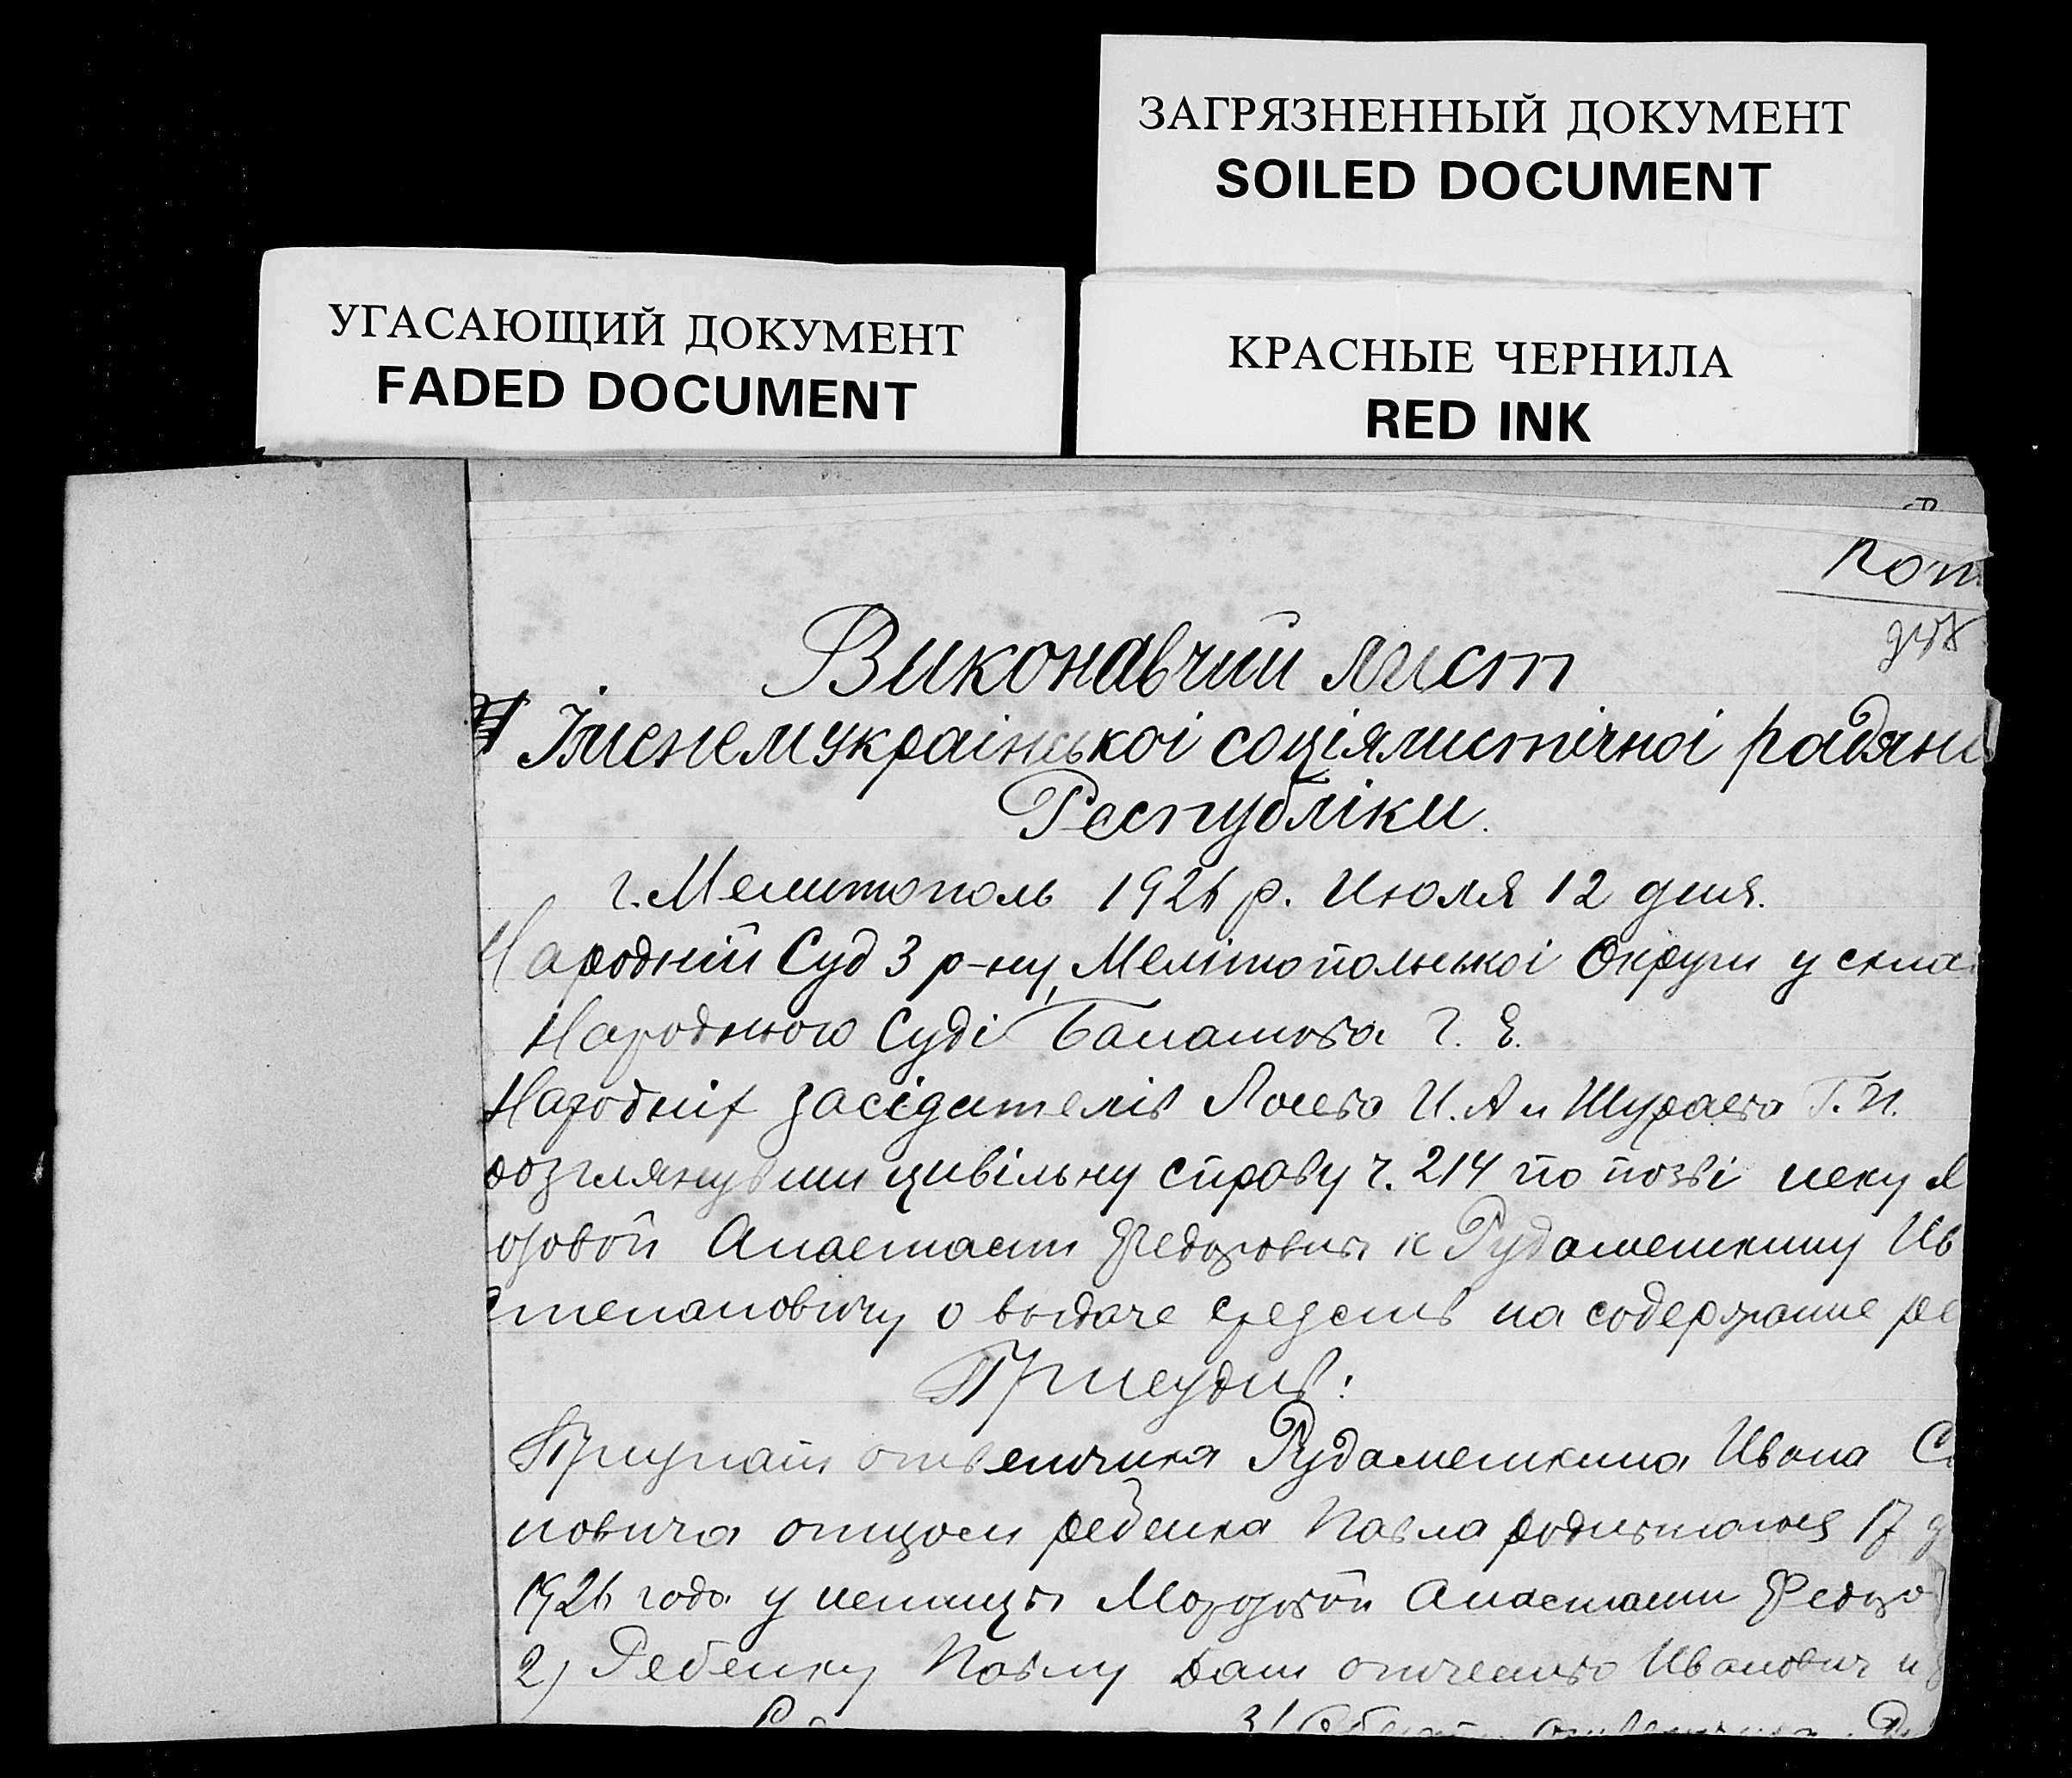 ЗАГРЯЗНЕННЫЙ ДОКУМЕНТ
SOILED DOCUMENT
УГАСАЮЩИЙ ДОКУМЕНТ
FADED DOCUMENT
КРАСНЫЕ ЧЕРНИЛА
RED INK
Коп
Виконавчий лист
Іменем української соціялистічної радянс
Республіки.
г. Мелитополь 1926 р. Июля 12 дня.
Народній Суд 3 р-ну, Мелітопольської Округи у скла
Народнього Суді Г. Е.
Народніх засідателів И. А и Шураева Г. И.
розглянувши цивільну справу ч. 214 по позві иску М
озовой Анастасии Федоровны к Рудаметкину Ив
Степановичу о выдаче средств на содержание ре
Присудив:
Признать ответчика Рудаметкина Ивана С
новича отцом ребенка Павла родившагося 17
1926 года у истицы Морозовой Анастасии Федоро
2) Ребенку Павлу дать отчество Иванович и
3) ответчика